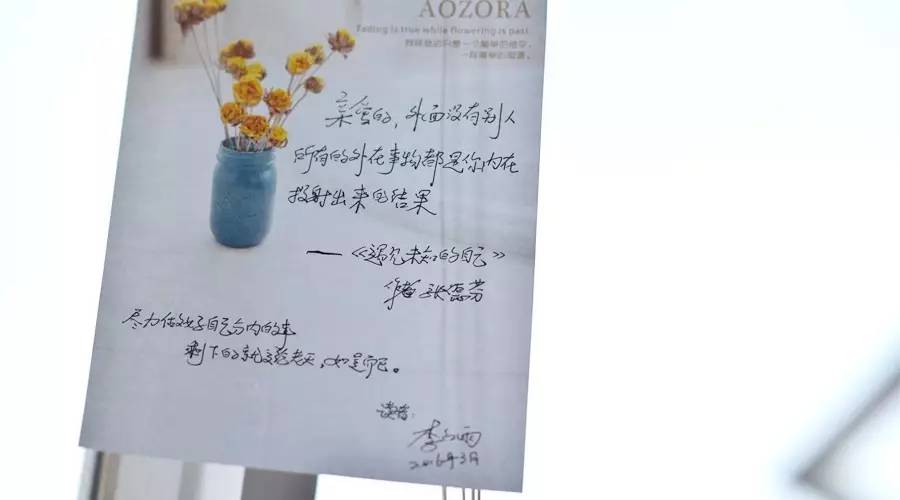 AOZORA
Fading is true while flowering is past.
亲爱的，外面没有别人
所有的外在事物都是你内在
投射出来的结果
——《遇见未知的自己》
作者 张德芬
尽力做好自己分内的事
剩下的就交给老天，如是而已。
读者：
李 雨
2016年3月